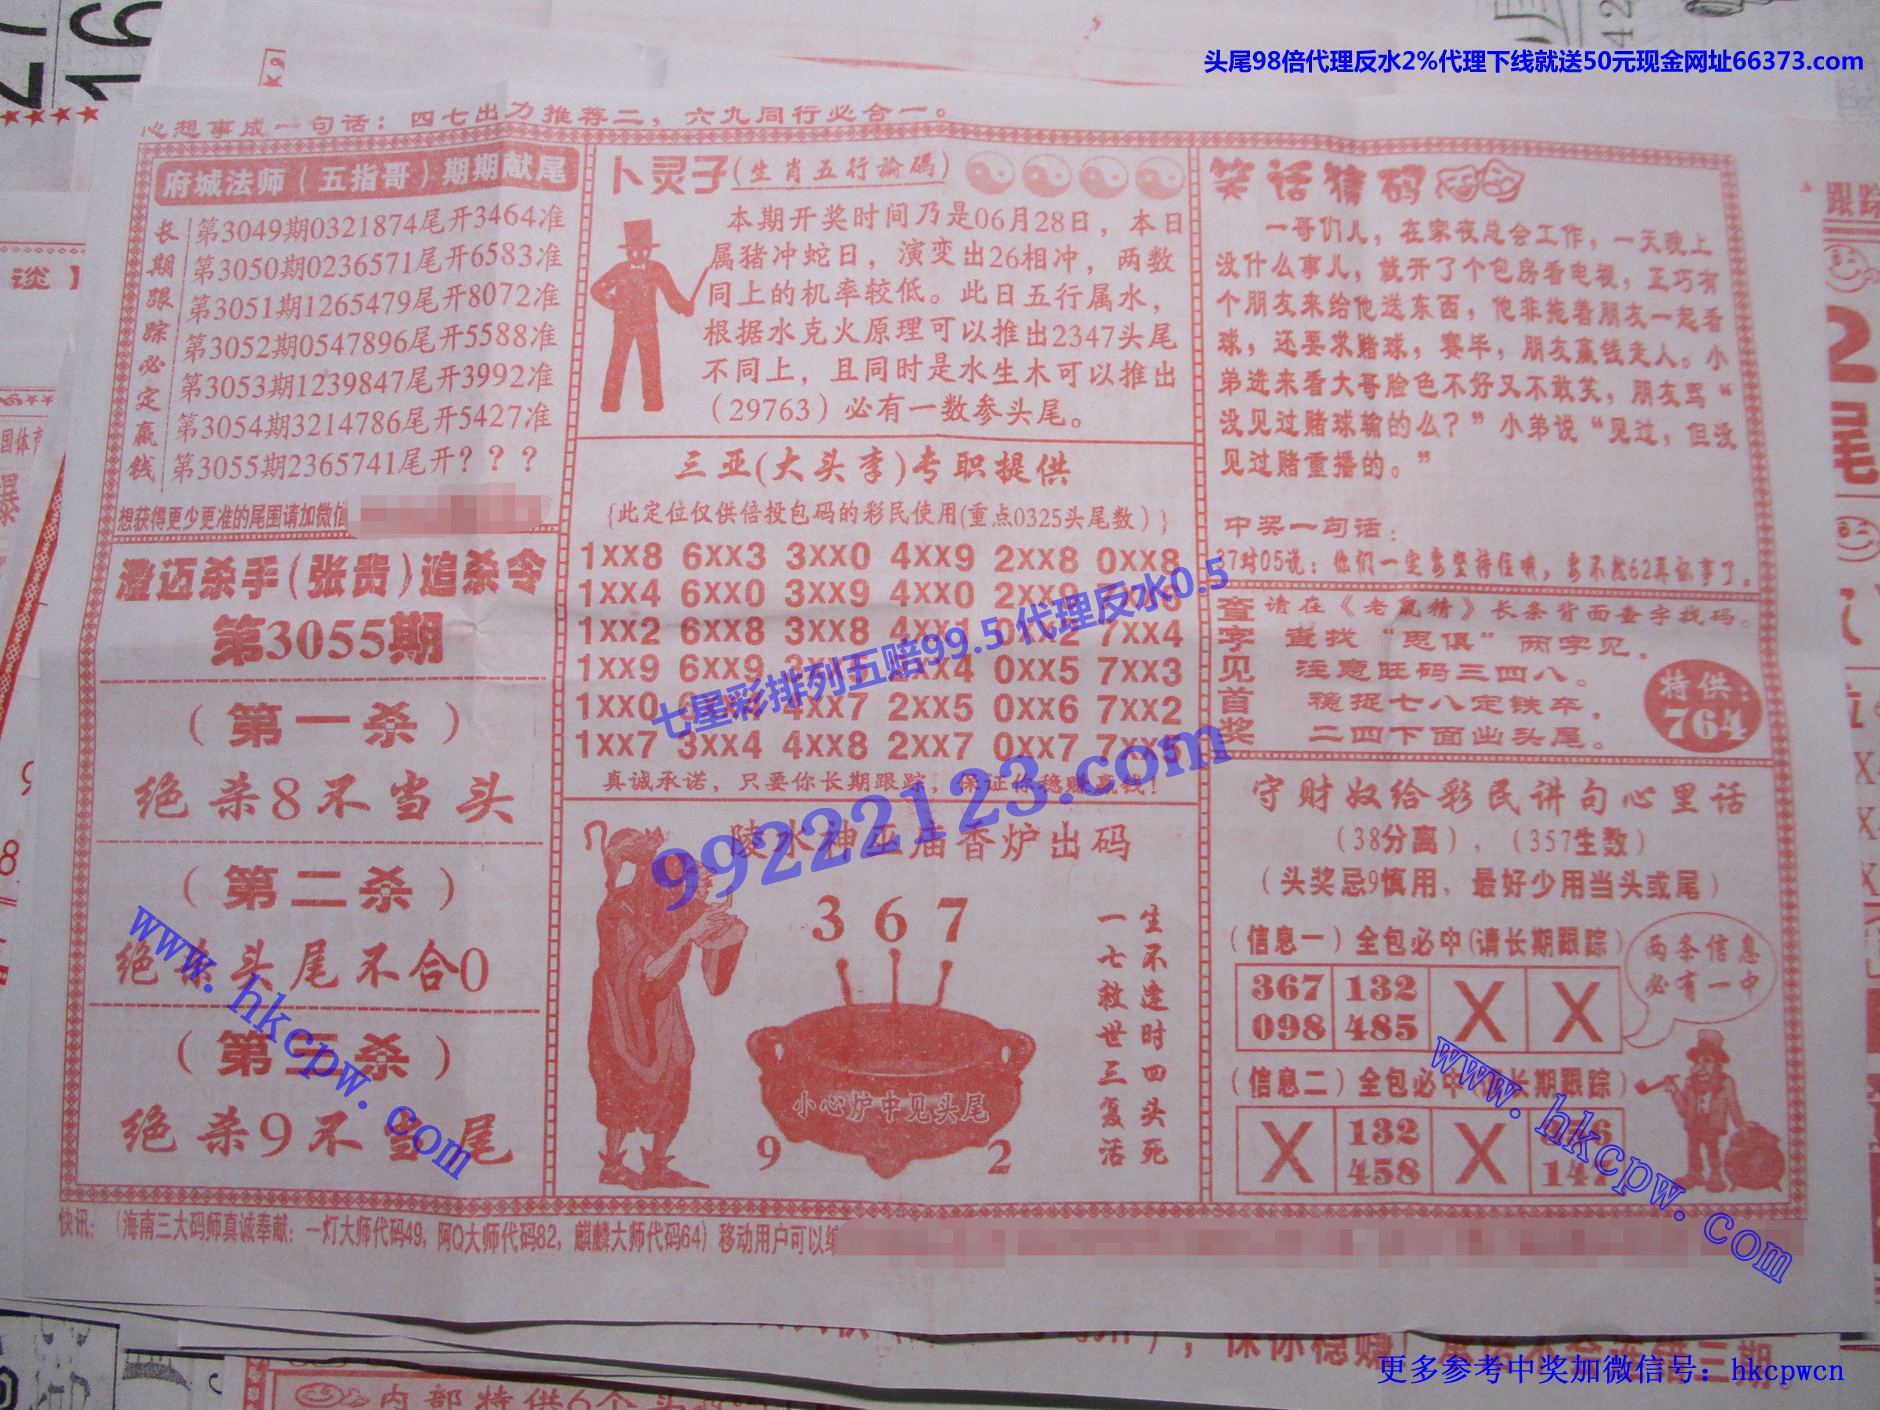 头尾98倍代理反水2%代理下线就送50元现金网址66373.com
心想事成一句话：四七出力推荐二，六九同行必合一。
府城法师（五指哥）期期献尾
长期跟踪必定赢钱
第3049期0321874尾开3464准
第3050期0236571尾开6583准
第3051期1265479尾开8072准
第3052期0547896尾开5588准
第3053期1239847尾开3992准
第3054期3214786尾开5427准
第3055期2365741尾开？？？
想获得更少更准的尾围请加微信
澄迈杀手(张贵)追杀令
第3055期
（第一杀）
绝杀8不当头
（第二杀）
绝杀头尾不合0
（第三杀）
绝杀9不当尾
卜灵子(生肖五行論碼)
本期开奖时间乃是06月28日，本日
属猪冲蛇日，演变出26相冲，两数
同上的机率较低。此日五行属水，
根据水克火原理可以推出2347头尾
不同上，且同时是水生木可以推出
（29763）必有一数参头尾。
三亚(大头李)专职提供
{此定位仅供倍投包码的彩民使用(重点0325头尾数)}
1xx8 6xx3 3xx0 4xx9 2xx8 0xx8
1xx4 6xx0 3xx9 4xx0
1xx2 6xx8 3xx8 4xx1 7xx4
1xx9 6xx9 0xx5 7xx3
1xx0 4xx7 2xx5 0xx6 7xx2
1xx7 3xx4 4xx8 2xx7 0xx7 7xx5
真诚承诺，只要你长期跟踪，保证你稳赚赢钱！
陵水神巫庙香炉出码
3 6 7
生不逢时四头死
一七救世三复活
小心炉中见头尾
9 2
笑话猜码
一哥们儿，在家夜总会工作，一天晚上
没什么事儿，就开了个包房看电视，正巧有
个朋友来给他送东西，他非拖着朋友一起看
球，还要求赌球，赛毕，朋友赢钱走人。小
弟进来看大哥脸色不好又不敢笑，朋友骂“
没见过赌球输的么？”小弟说“见过，但没
见过赌重播的。”
中奖一句话：
37对05说：他们一定要坚持住哦，要不然62再你事了。
查字见首奖
请在《老鼠精》长条背面查字找码。
查找“思俱”两字见，
注意旺码三四八。
稳捉七八定铁卒，
二四下面出头尾。
特供：
764
守财奴给彩民讲句心里话
（38分离），（357生数）
（头奖忌9慎用，最好少用当头或尾）
(信息一)全包必中(请长期跟踪)
367 132 X X
098 485
两条信息
必有一中
(信息二)全包必中 长期跟踪)
X 132 X
458 147
快讯：(海南三大码师真诚奉献：一灯大师代码49，阿Q大师代码82，麒麟大师代码64)移动用户可以编
七星彩排列五赔99.5 代理反水0.5
99222123.com
www.hkcpw.com
www.hkcpw.com
内部特供6个头
更多参考中奖加微信号：hkcpwcn